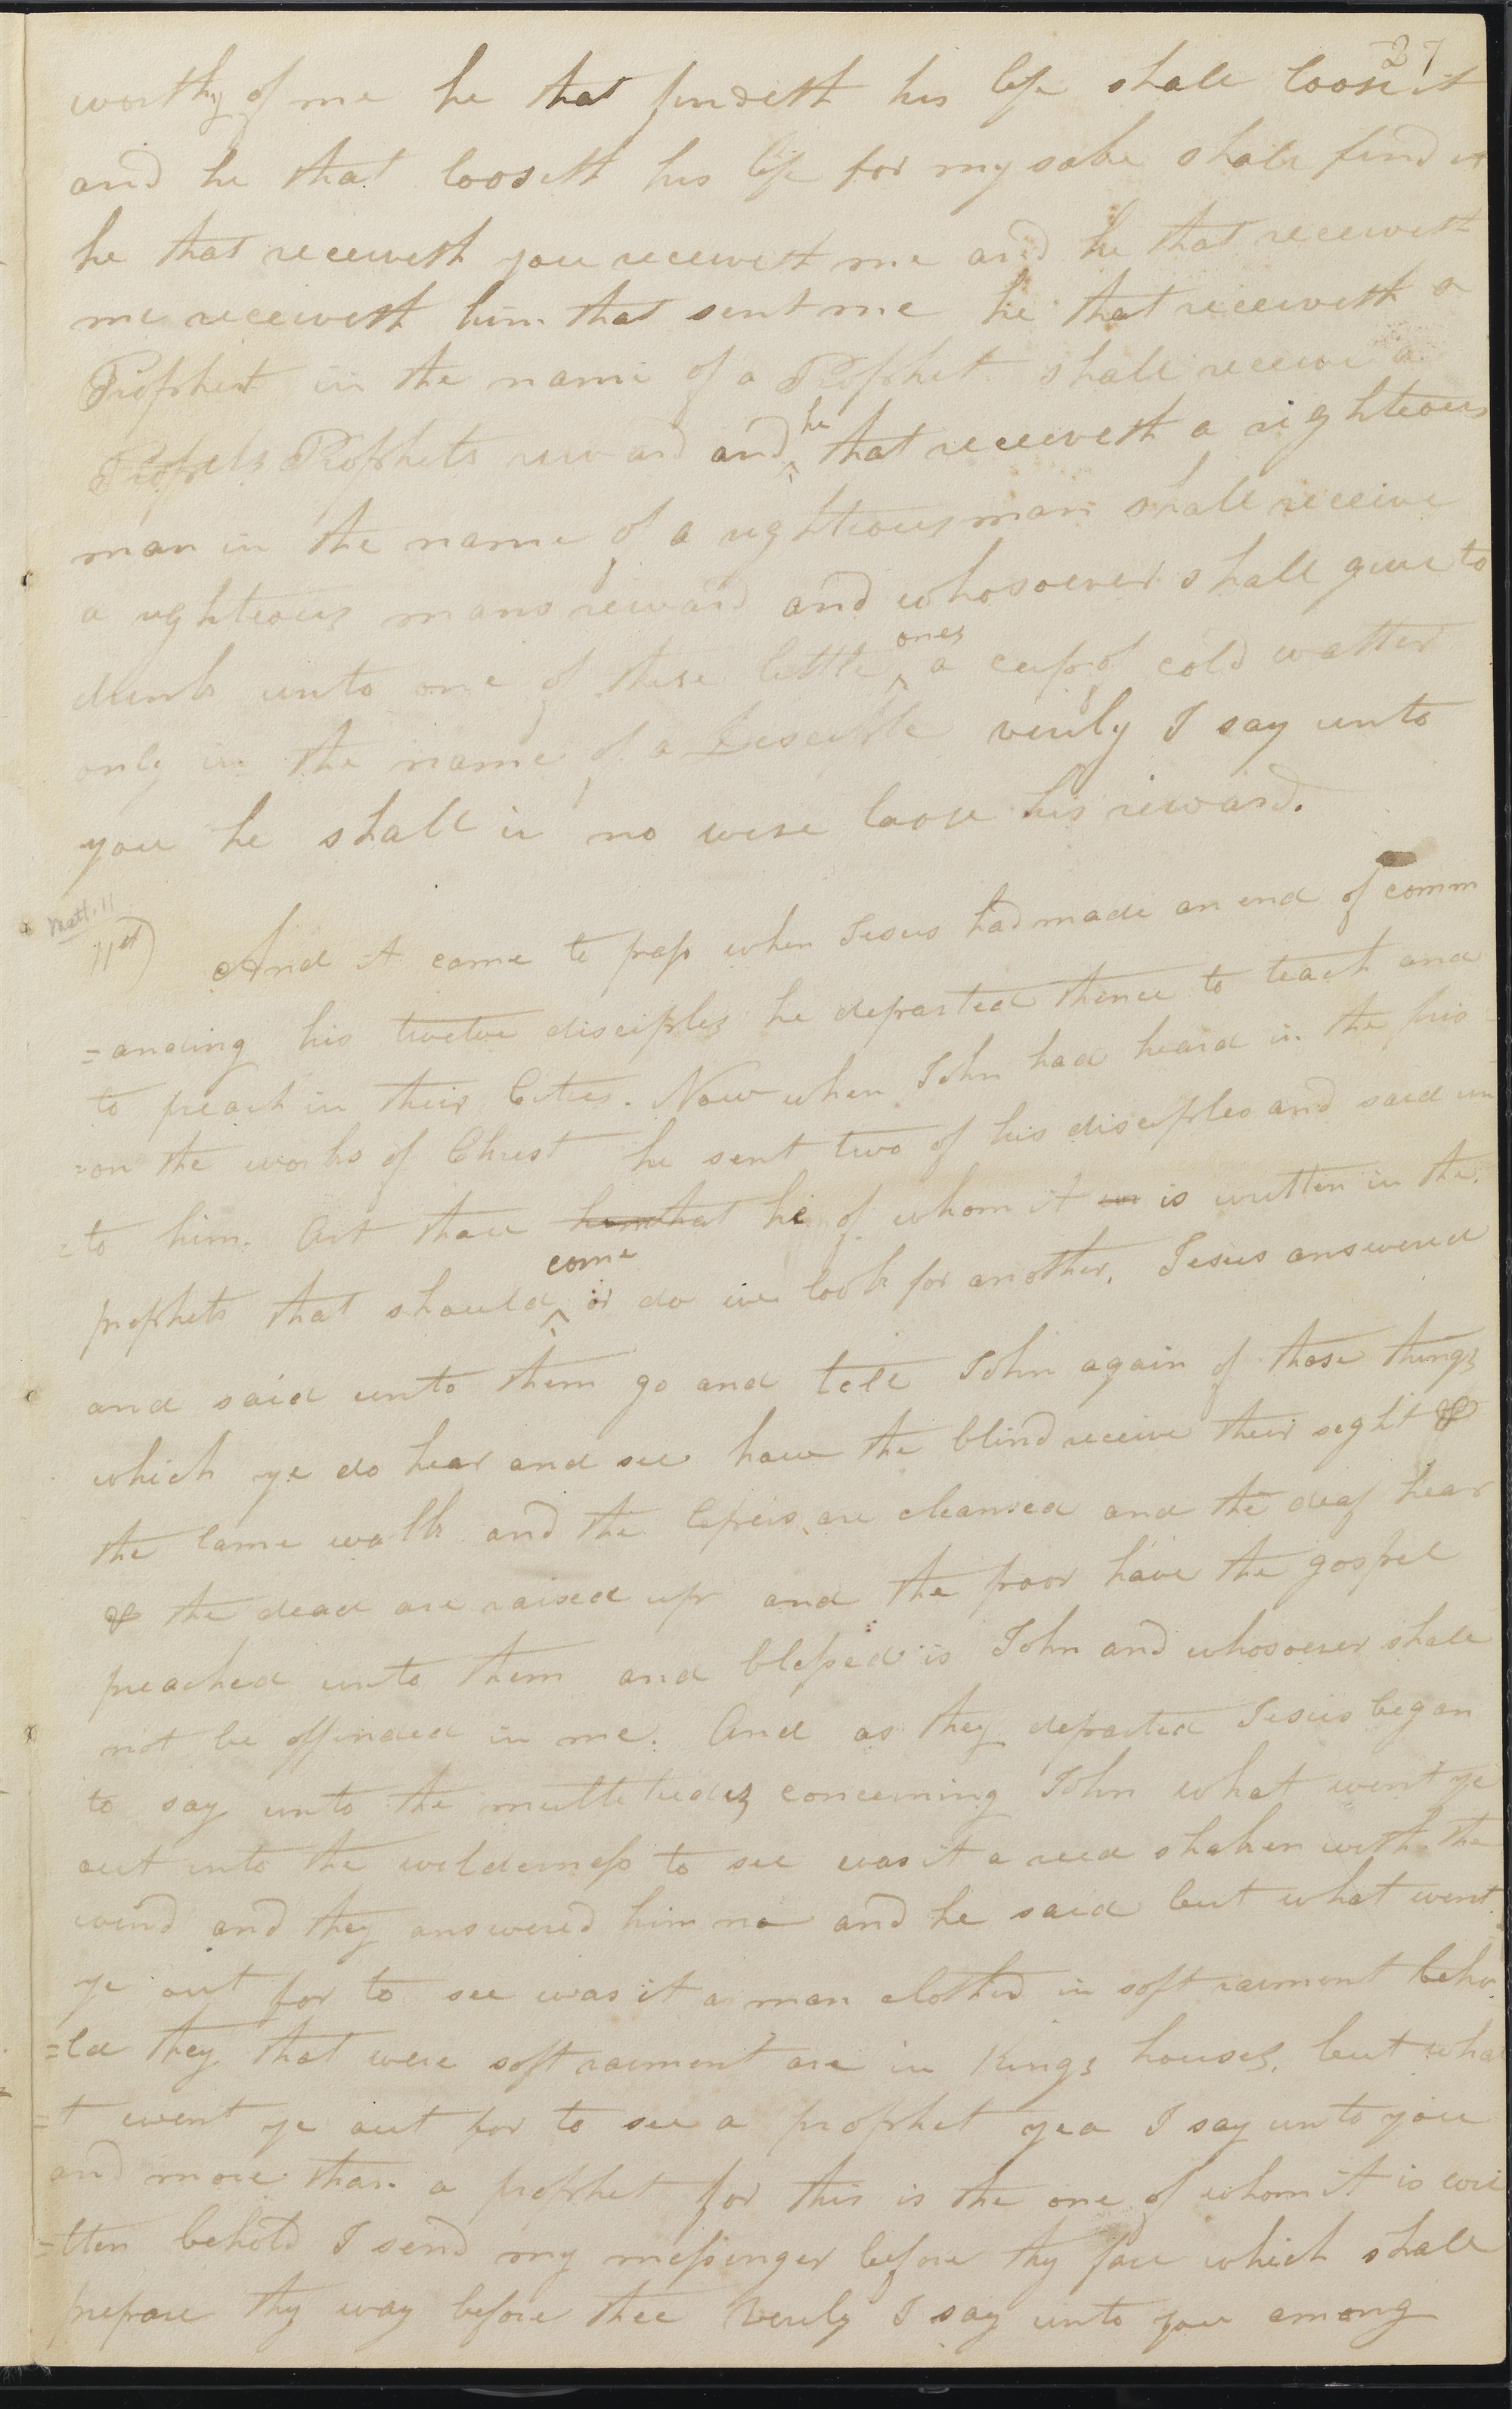 27
worthy of me he that findeth his life shall loose it
and he that looseth his life for my sake shall find it
he that receiveth you receiveth me and he that receiveth
me receiveth him that sent me he that receiveth a
Prophet in the name of a Prophet shall receive a
Prophets Prophets reward and he that receiveth a righteous
man in the name of a righteous man shall receive
a righteous mans reward and whosoever shall give to
drink unto one of these little ones a cup of cold watter
only in the name of a Desciple verily I say unto
you he shall in no wise loose his reward.
Matt. 11
11st) And it came to pass when Jesus had made an end of comm
=anding his twelve disciples he departed thence to teach and
to preach in their Cities. Now when John had heard in the pris
=on the works of Christ he sent two of his disciples and said un
=to him. Art thou him that he of whom it us is written in the
prophets that should come or do we look for another. Jesus answered
and said unto them go and tell John again of those things
which ye do hear and see how the blind receive their sight &
the lame walk and the lepers are cleansed and the deaf hear
& the dead are raised up and the poor have the gospel
preached unto them and blessed is John and whosoever shall
not be offended in me. And as they departed Jesus began
to say unto the multetudes concerning John what went ye
out into the wilderness to see was it a reed shaken with the
wind and they answered him no and he said but what went
ye out for to see was it a man clothed in soft raiment beho
=ld they that were soft raiment are in Kings houses. but wha
=t went ye out for to see a prophet yea I say unto you
and more than a prophet for this is the one of whom it is wri
=tten behold I send my messenger before thy face which shall
prepare thy way before thee Verily I say unto you among